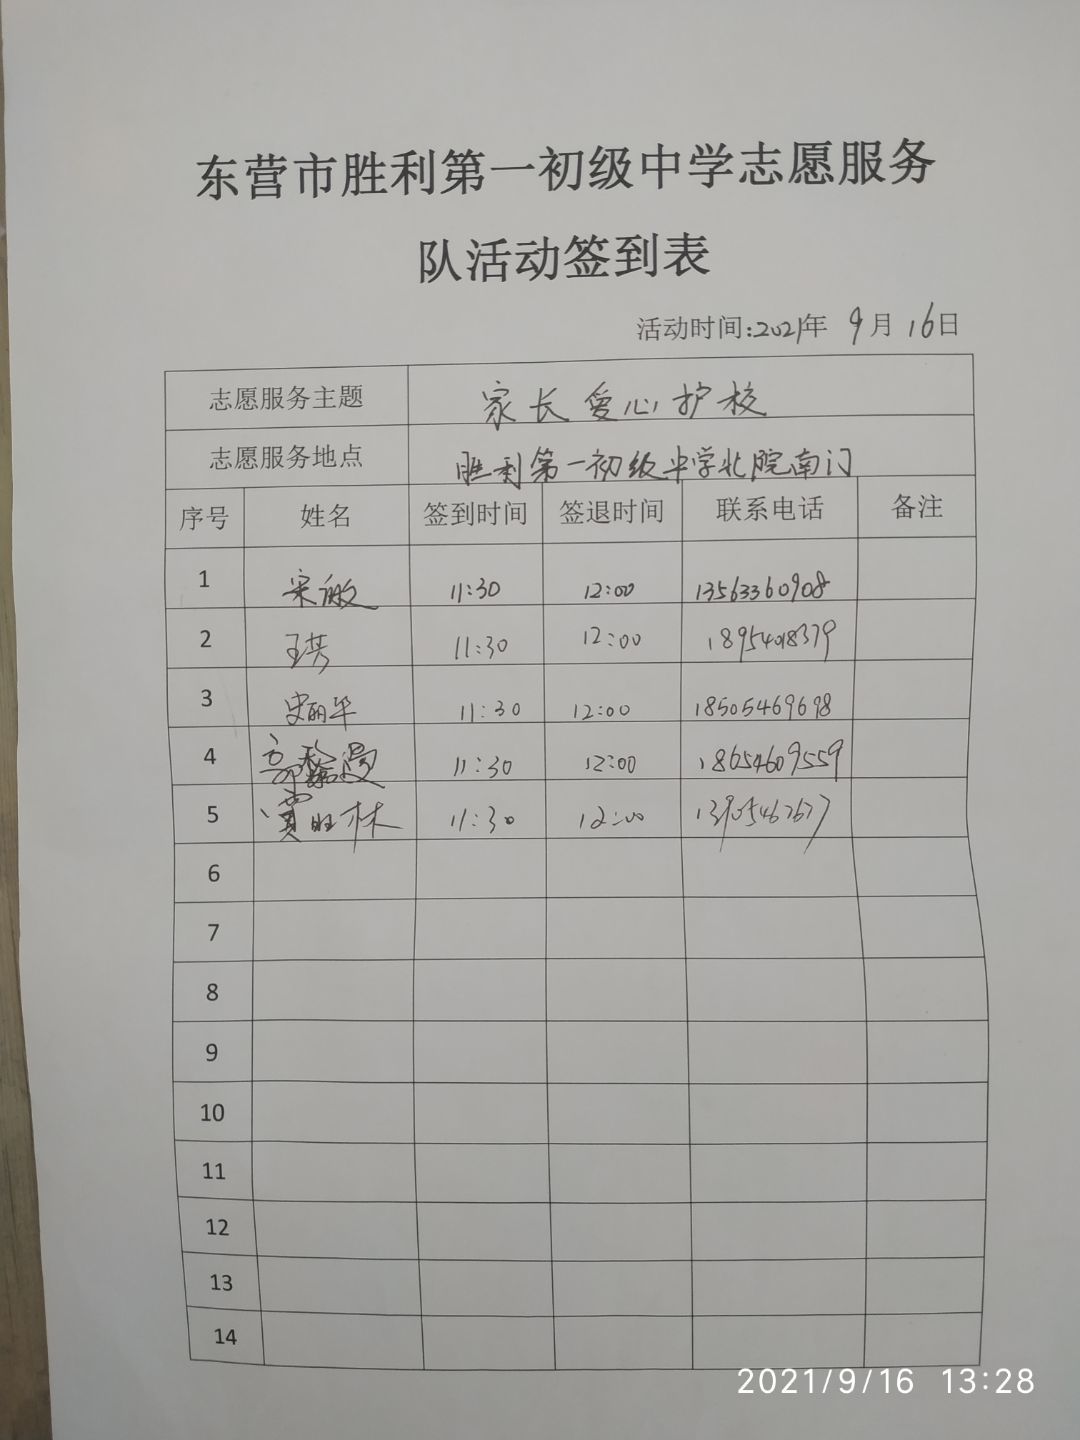 东营市胜利第一初级中学志愿服务
队活动签到表
活动时间:2021年 9月 16日
志愿服务主题 家长爱心护校
志愿服务地点 胜利第一初级中学北院南门
序号 姓名 签到时间 签退时间 联系电话 备注
1 宋敏 11:30 12:00 13563360908
2 王芳 11:30 12:00 18954018379
3 史丽华 11:30 12:00 18505469698
4 11:30 12:00 18654609559
5 贾旺林 11:30 12:00
6
7
8
9
10
11
12
13
14
2021/9/16 13:28